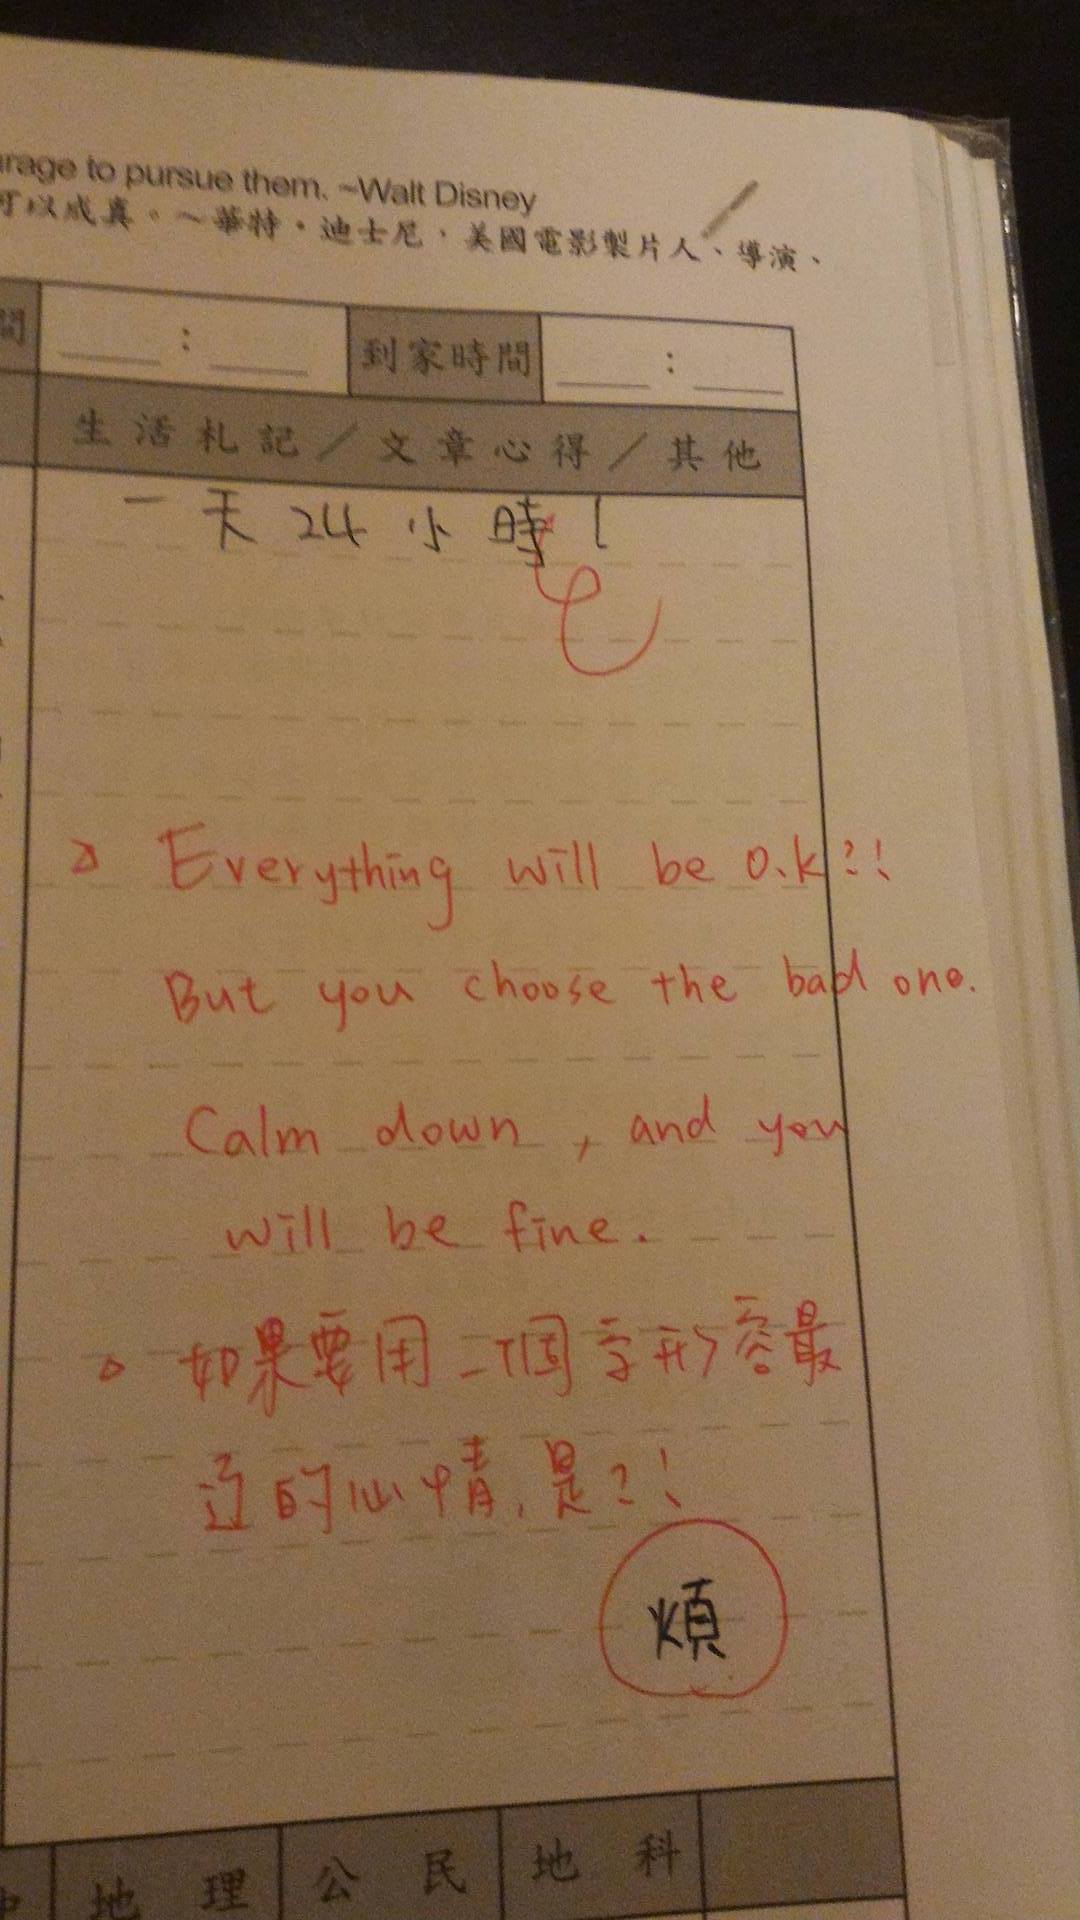 rage to pursue them. ~Walt Disney
可以成真。~華特·迪士尼,美國電影製片人、導演、
間 : 到家時間 :
生活札記/文章心得/其他
一天24小時!
Everything will be O.k?!
But you choose the bad one.
Calm down, and you
will be fine.
如果要用一個字形容最
近的心情,是?!
煩
地理 公民 地科